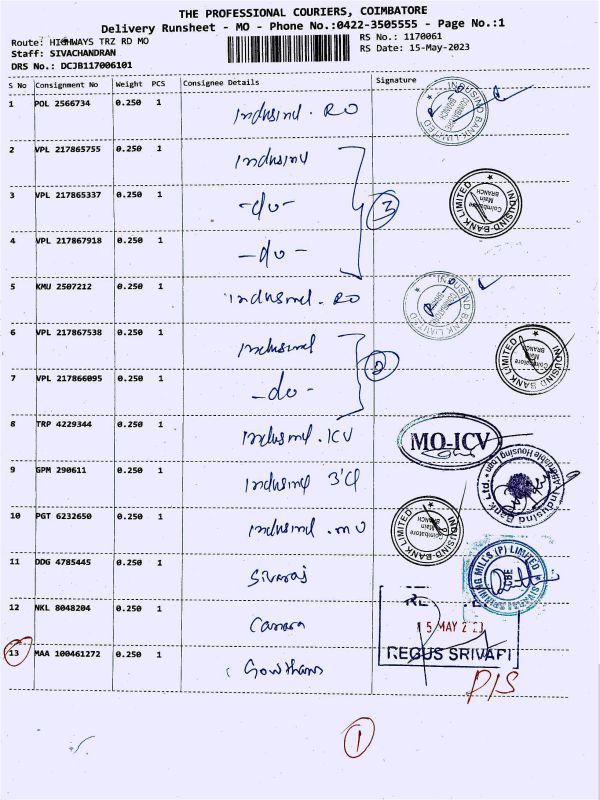 THE PROFESSIONAL COURIERS, COIMBATORE
Delivery Runsheet - MO - Phone No.:0422-3505555 - Page No.:1
Route: HIGHWAYS TRZ RD MO
RS No.: 1170061
Staff: SIVACHANDRAN
RS Date: 15-May-2023
DRS No.: DCJB117006101
S No Consignment No Weight PCS Consignee Details Signature
1 POL 2566734 0.250 1 Indusind . RO
INDUSIND BANK LIMITED
2 VPL 217865755 0.250 1 Indusind
3 VPL 217865337 0.250 1 -do- 3
INDUSIND BANK LIMITED
Coimbatore Main BRANCH
4 VPL 217867918 0.250 1 -do-
5 KMU 2507212 0.250 1 Indusind . RO
INDUSIND BANK LIMITED
6 VPL 217867538 0.250 1 Indusind
INDUSIND BANK LIMITED
Coimbatore Main BRANCH
7 VPL 217866095 0.250 1 -do- 2
8 TRP 4229344 0.250 1 Indusind . ICV
MO-ICV
9 GPM 290611 0.250 1 Indusind
IndusInd Bank Ltd.
10 PGT 6232650 0.250 1 Indusind
INDUSIND BANK LIMITED
Coimbatore Main BRANCH
11 DDG 4785445 0.250 1 Sivaraj
SIVARAJ SPINNING MILLS (P) LIMITED
CBE
12 NKL 8048204 0.250 1 Canara
15 MAY 2023
13 MAA 100461272 0.250 1 Gowtham
REGUS SRIVARI
P/S
1